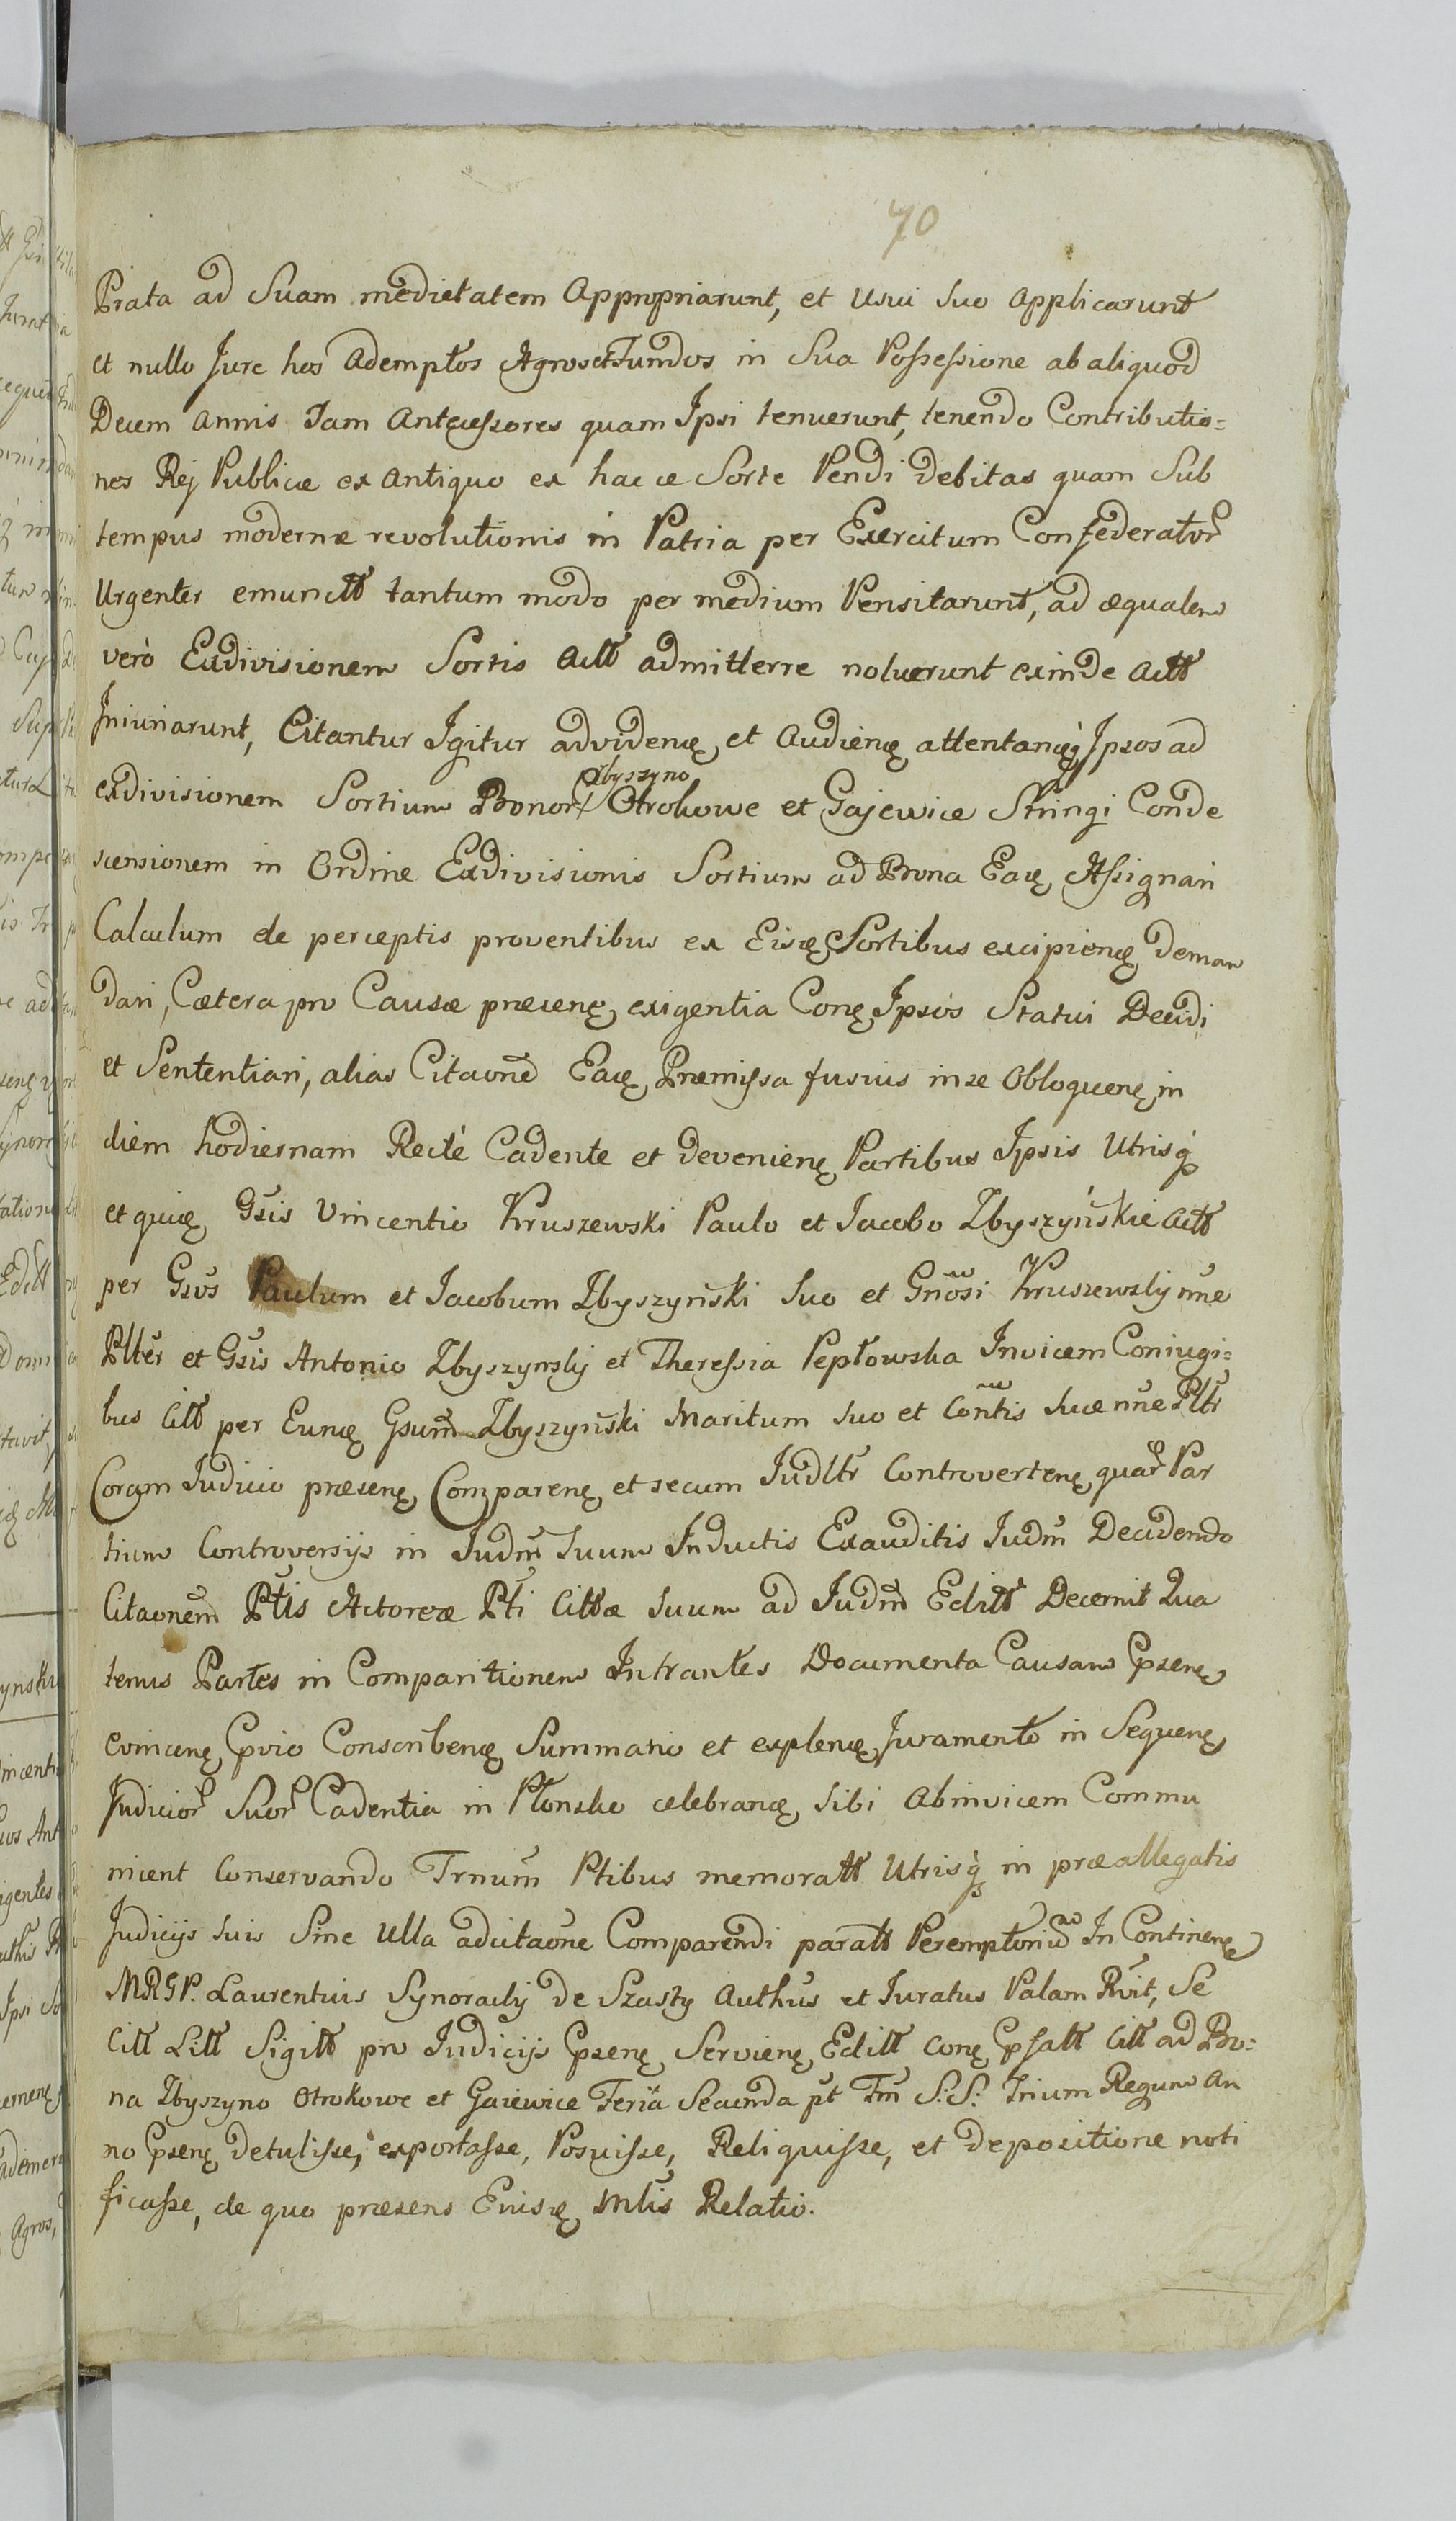 70
Prata ad Suam medietatem Appropriarunt, et Usui Suo Applicarunt
et nullo Jure hos Ademptos Agros et Fundos in Sua Possessione ab aliquod
Decem Annis Tam Antecessores quam Ipsi tenuerunt, tenendo Contributio=
nes Rej Publicæ ex Antiquo ex hacce Sorte Pendi Debitas quam Sub
tempus modernæ revolutionis in Patria per Exercitum Confederator
Urgenter emunctt tantum modo per medium Pensitarunt, ad æqualem
verò Exdivisionem Sortis Actt admitterre noluerunt exinde Actt
Iniuriarunt, Citantur Igitur ad videnę et Audienę attentanęq Ipsos ad
Zbyszyno
exdivisionem Sortium Bonor Otrokowe et Gajewice Stringi Conde
scensionem in Ordine Exdivisionis Sortium ad Bona Eaę Assignari
Calculum de perceptis proventibus ex Eisę Sortibus excipienę deman
dari, Cætera pro Causæ præsenę exigentia Conę Ipsos Statui Decidi
et Sententiari, alias Citaone Eaę Præmissa fusius in se Obloquenę in
diem hodiernam Recte Cadente et devenienę Partibus Ipsis Utrisq
et quię Gsis Vincentio Kruszewski Paulo et Jacobo Zbyszyńskie Actt
per Gsos Paulum et Jacobum Zbyszyński Suo et Gnosi Kruszewskij nne
Plter et Gsis Antonio Zbyszynskij et Theressia Peptowska Invicem Coniugi=
bus Citt per Eunę Gsum Zbyszyński Maritum Suo et Contis Suæ nne Pltr
Coram Iudicio præsenę Comparenę et secum Iudltr Controvertenę quar Par
tium Controversijs in Iudm Suum Inductis Exauditis Iudm Decidendo
Citaonem Ptis Actoreæ Pti Cittæ Suum ad Iudm Editt Decernit Qua
tenus Partes in Comparitionem Intrantes Documenta Causam Psenę
evincenę Pvio Conscribenę Summario et explenę Juramento in Sequenę
Judicior Suor Cadentia in Płonsko celebranę Sibi Abinvicem Commu
nicent Conservando Trnum Ptibus memoratt Utrisq in præallegatis
Judicijs Suis Sine Ulla adcitaone Comparendi paratt Peremptorium In Continenę
MRGP. Laurentius Synoradij de Szasty Authus et Juratus Palam Rvit, Se
Citt Litt Sigitt pro Iudicijs Psenę Servienę Editt Conę Psatt Citt ad Bo=
na Zbyszyno Otrokowe et Gaiewice Feria Secunda pt Fm S: S: Trium Regum An
no Psenę detulisse, exportasse, Posuisse, Reliquisse, et depositione noti
ficasse, de quo præsens Eiusę Mlis Relatio.